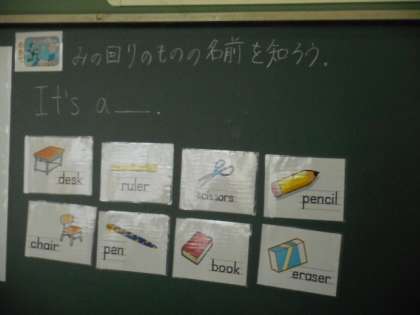 みの回りのものの名前を知ろう.
It's a __.
desk
ruler
scissors
pencil
chair
pen
book
eraser